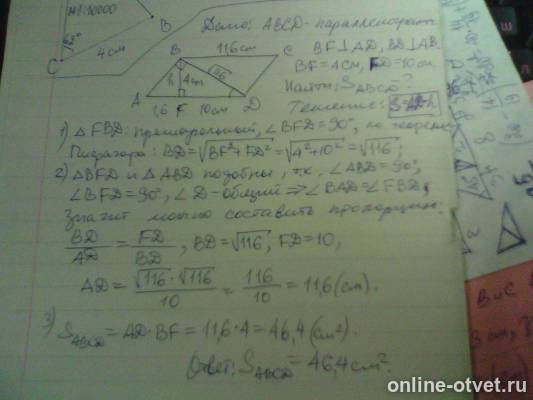 М 1:10000
B
63°
4 см
C
Дано: ABCD-параллелограмм
11,6 см
B
C
BF⊥AD, BD⊥AB.
h
4 см
√116
BF=4см, FD=10см.
Найти: S ABCD-?
A
D
1,6 F 10см
Решение: S=a·h
1) △FBD: прямоугольный, ∠BFD=90°, по теореме
Пифагора: BD=√BF²+FD²=√4²+10²=√116;
2) △BFD и △ABD подобны, т.к. ∠ABD=90°,
∠BFD=90°, ∠D-общий ⇒∠BAD=∠FBD,
значит можно составить пропорции.
BD/AD = FD/BD, BD=√116, FD=10,
AD = √116·√116/10 = 116/10 = 11,6(см).
3) S ABCD = AD·BF = 11,6·4 = 46,4(см²).
Ответ: S ABCD = 46,4см².
online-otvet.ru